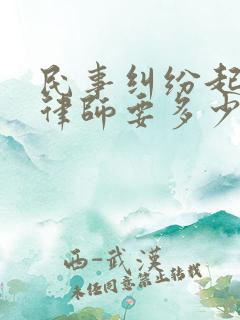 民事纠纷起
律师要多少
西-武漢
未经同意禁止转载